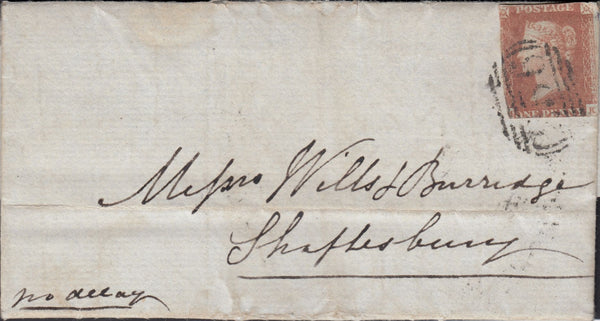 POSTAGE
ONE PENNY
Messrs Wills & Burridge
Shaftesbury
no delay